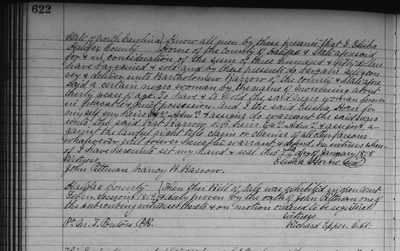 622
State of North Carolina Know all men by these presents that I Elisha
Halifax County Horne of the County of Halifax & State aforesaid
for & in consideration of the sum of three hundred & fifty dollars
have bargained & sold and by these presents do bargain sell con
vey & deliver unto Bartholomew Barrow of the County & State afore
said a certain negro woman by the name of about
thirty years of age To have & to hold the said negro woman
in peaceable quiet possession And I the said Elisha Horne for
my self my heirs & assigns do warrant the said negro
unto the said Barrow & heirs & assigns a-
gainst the lawful right title claim or claims of all other persons
whatsoever will forever hereafter warrant & defend In witness where
of I have hereunto set my hand & seal this day of January 1828
Witness Elisha Horne Seal
John Pittman Nancy H. Barrow.
Halifax County Then this Bill of Sale was exhibited in open court
Sessions duly proven by the oath of John Pittman one of
the subscribing witnesses thereto & on motion ordered to be registered
Witness
Richard Eppes C Ct.